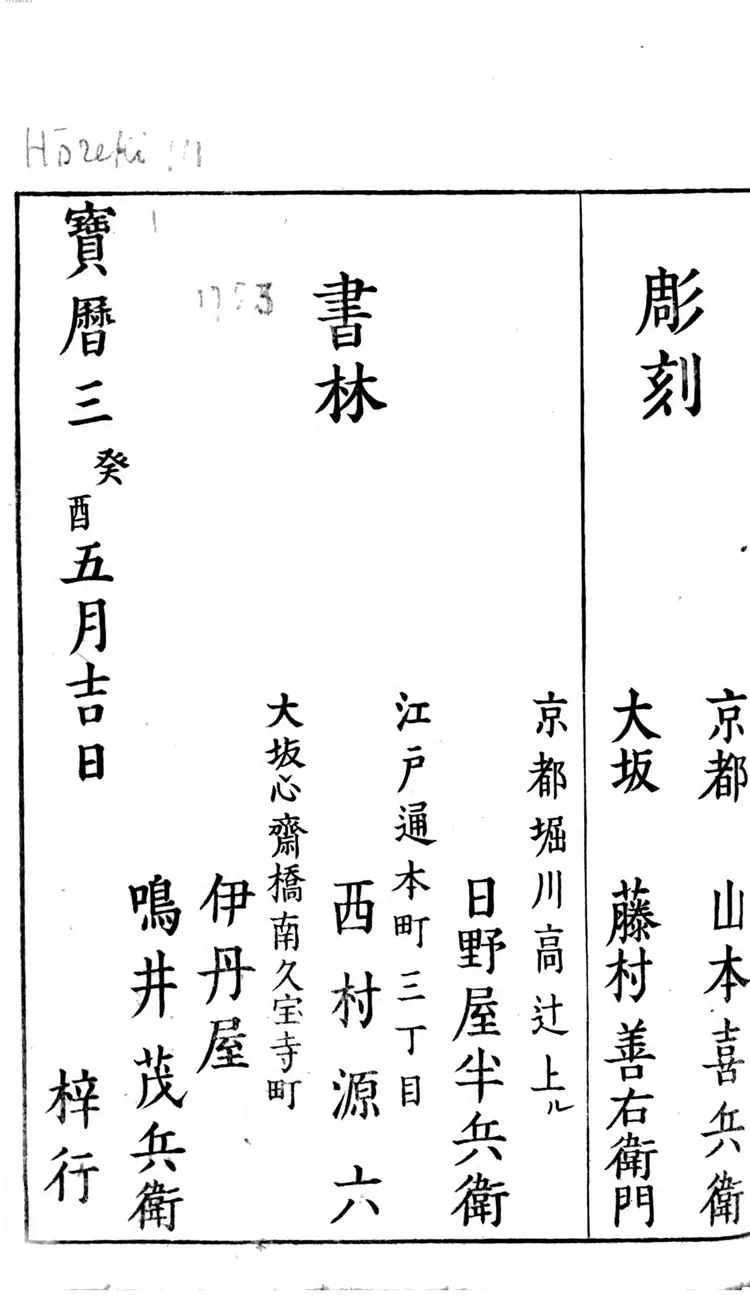 Hōreki III
1753
彫刻
京都 山本喜兵衛
大坂 藤村善右衛門
書林
京都堀川高辻上ル
日野屋半兵衛
江戸通本町三丁目
西村源六
大坂心齋橋南久宝寺町
伊丹屋
鳴井茂兵衛
寶曆三癸酉五月吉日
梓行